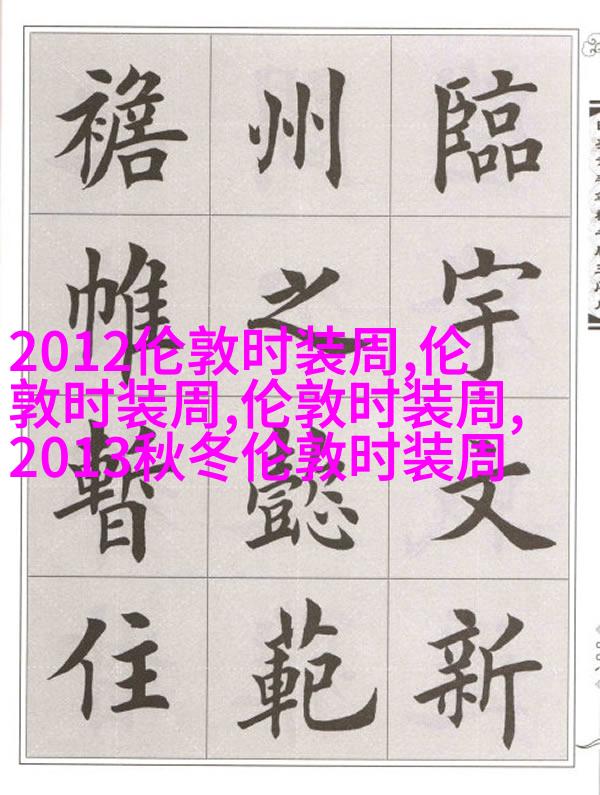 臨宇文新
州之懿範
襜帷暫住
2012伦敦时装周,伦
敦时装周,伦敦时装周,
2013秋冬伦敦时装周